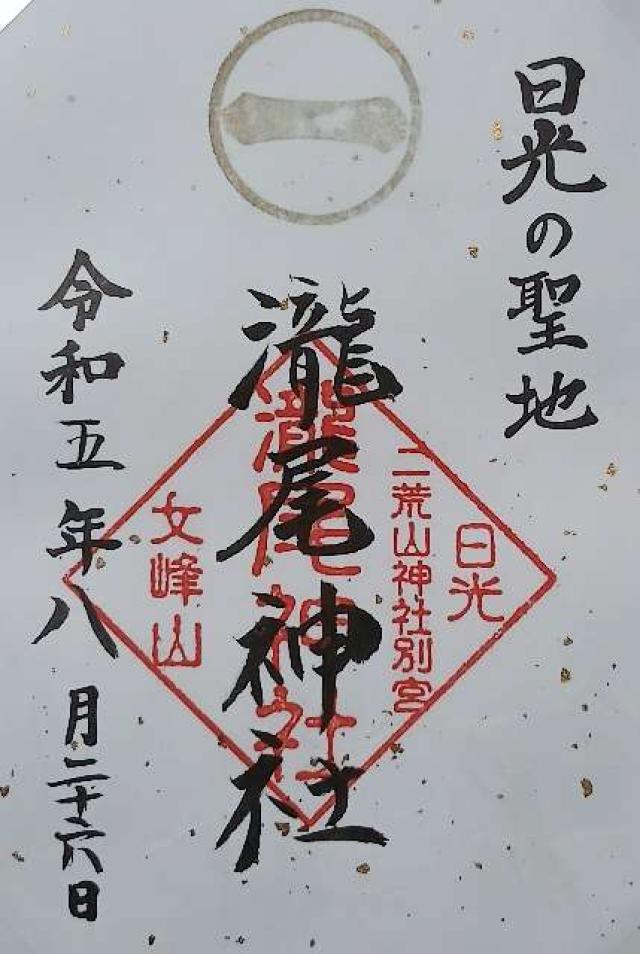 日光の聖地
日光
二荒山神社別宮
瀧尾神社
瀧尾神社
女峰山
令和五年八月二十六日